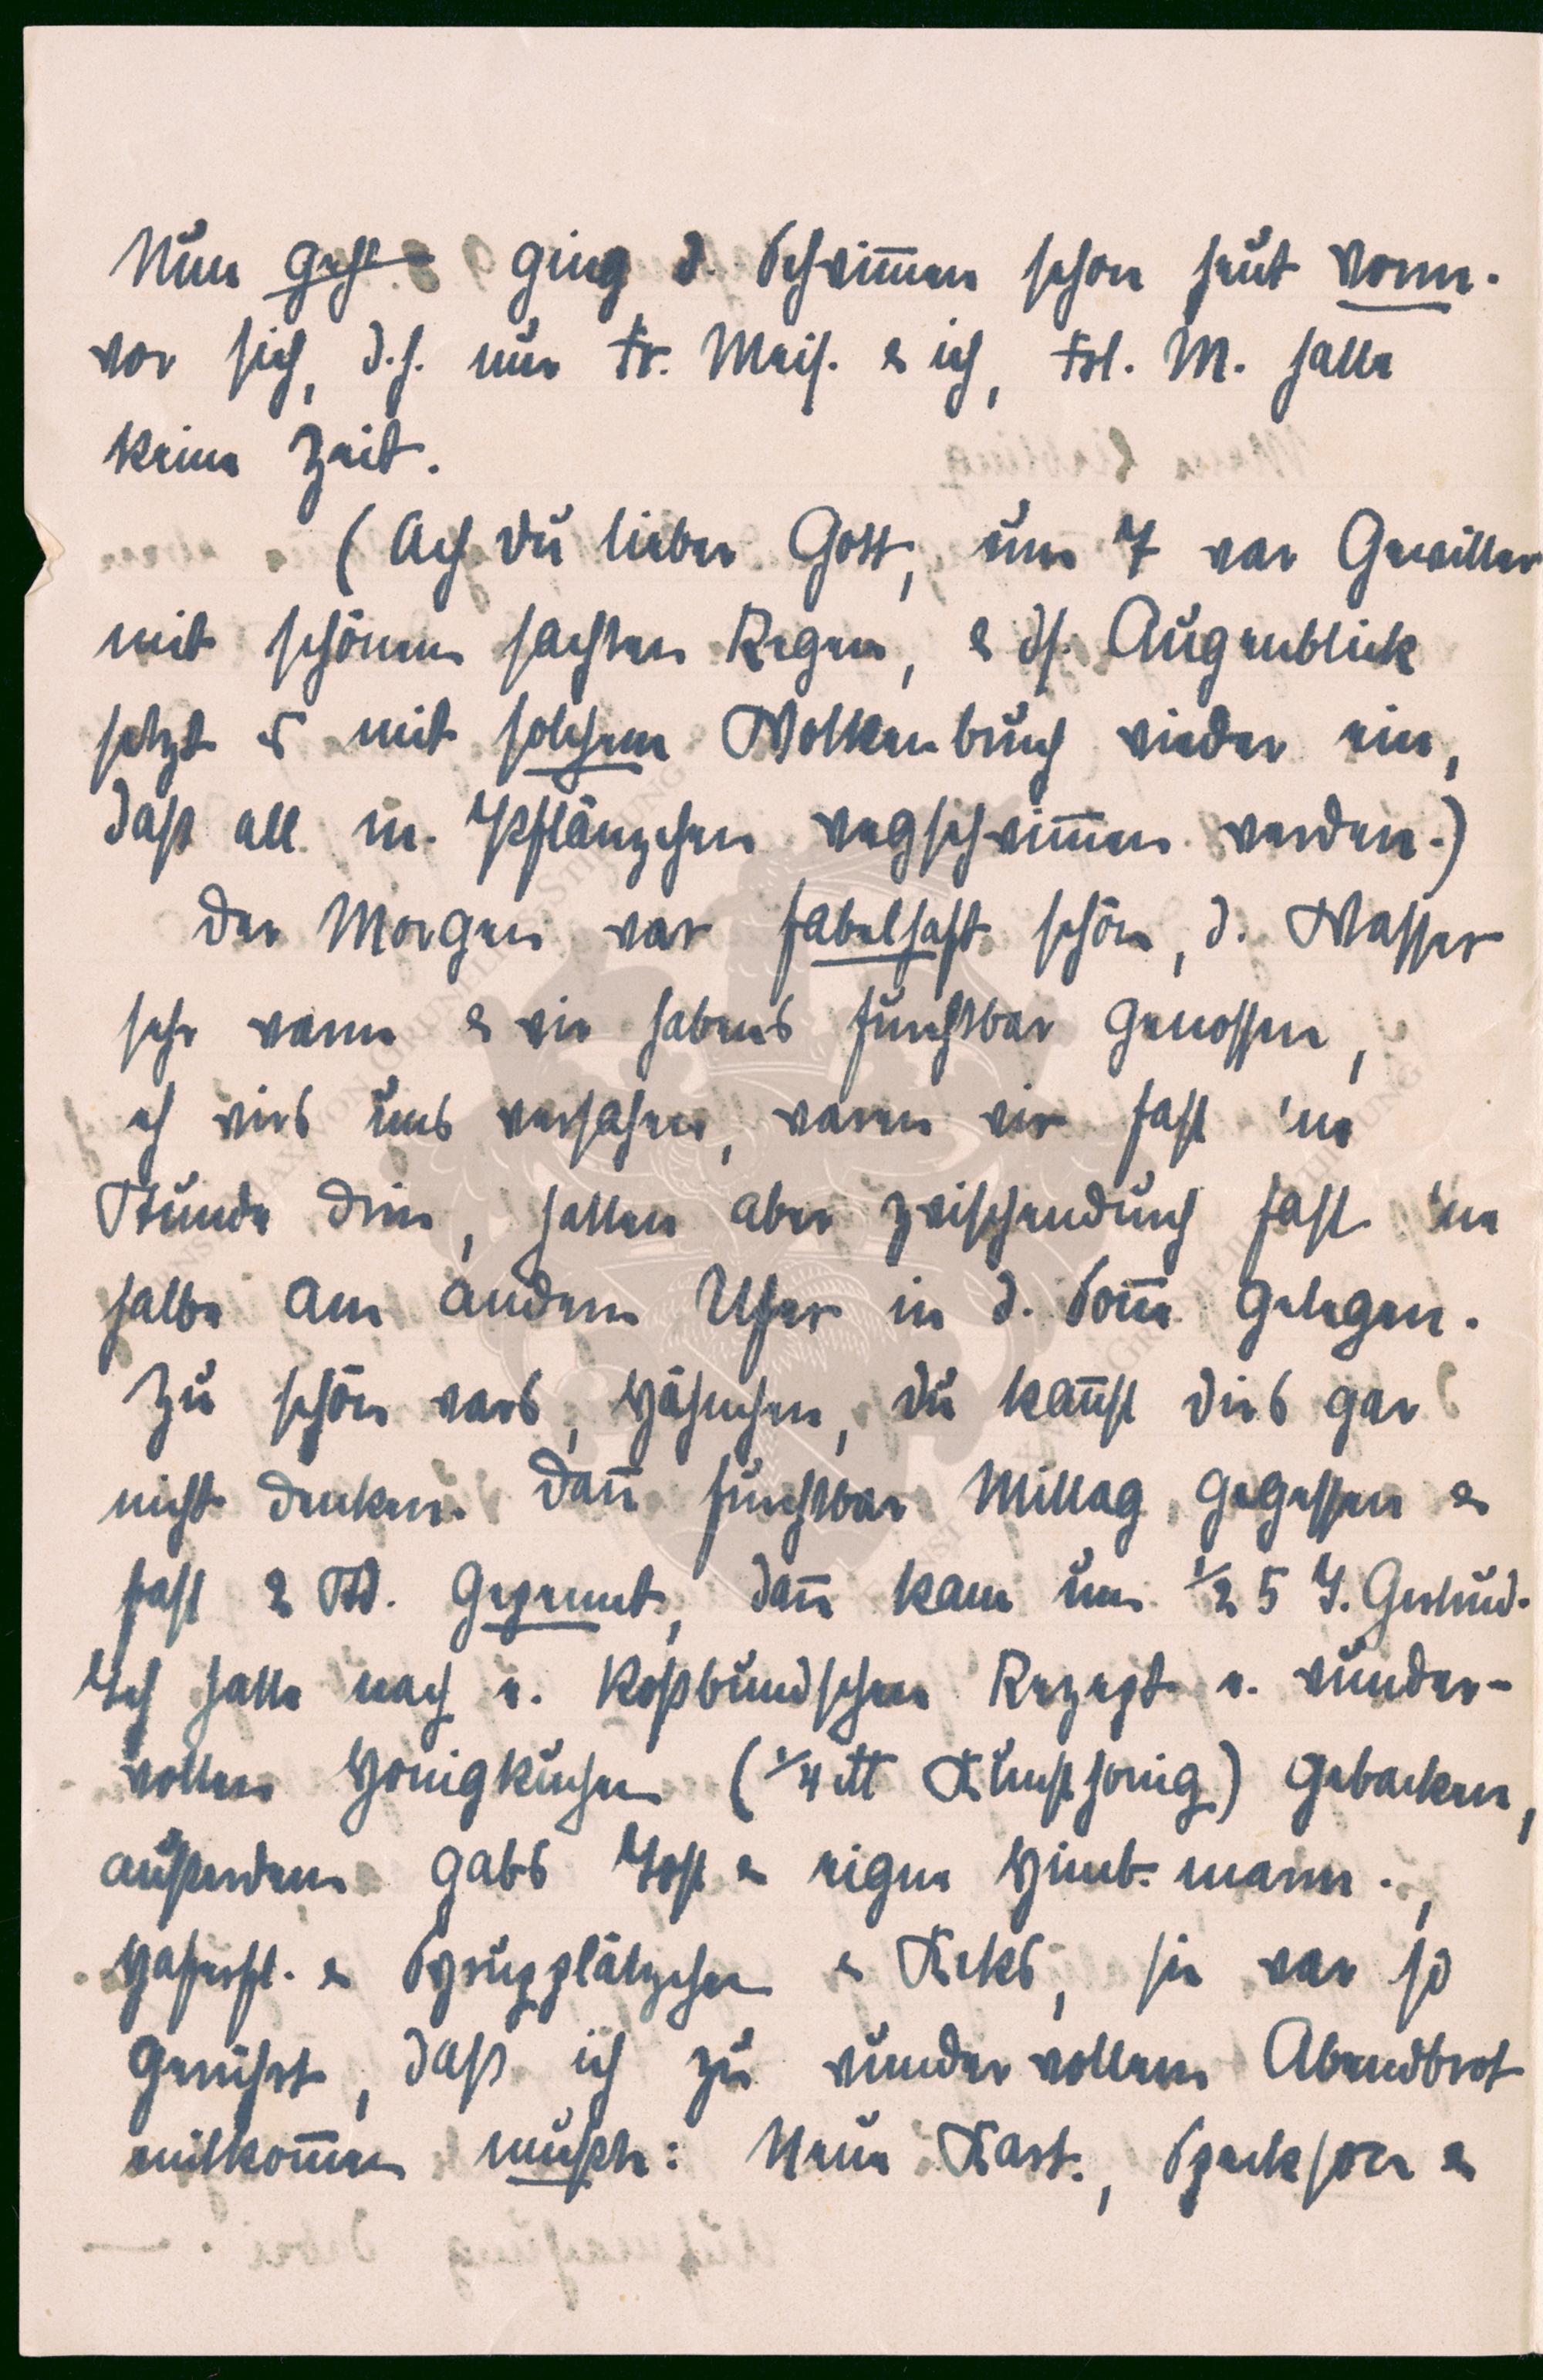 Nun geht ging d. Schwim̅en schon heut vorm.
vor sich, d.h. nur Fr. Meis. & ich, Frl. M. hatte
keine Zeit.
(Ach du lieber Gott, um 7 war Gewitter
mit schönem sachten Regen, & ds. Augenblick
setzt es mit solchem Wolkenbruch wieder ein,
daß all m. Pflänzchen wegschwim̅en werden.)
Der Morgen war fabelhaft schön, d. Wasser
sehr warm & wir habens furchtbar genossen,
eh wirs uns versahen, waren wir fast 'ne
Stunde drin, hatten aber zwischendurch fast 'ne
halbe am andern Ufer in d. Son̅e gelegen.
Zu schön wars, Häschen, du kan̅st dirs gar
nicht denken. Dan̅ furchtbar Mittag gegessen &
fast 2 St. gepennt, dan̅ kam um ½ 5 J. Gertrud.
Ich hatte nach e. Koßbundschen Rezept e. wunder-
vollen Honigkuchen (¼ ℔ Kunsthonig) gebacken,
außerdem gabs Toast & eigne Himb. marm.,
Haferfl. & Syrupplätzchen & Keks, sie war so
gerührt, daß ich zu wundervollem Abendbrot
mitkom̅en mußte: Neue Kart., Specksoce &